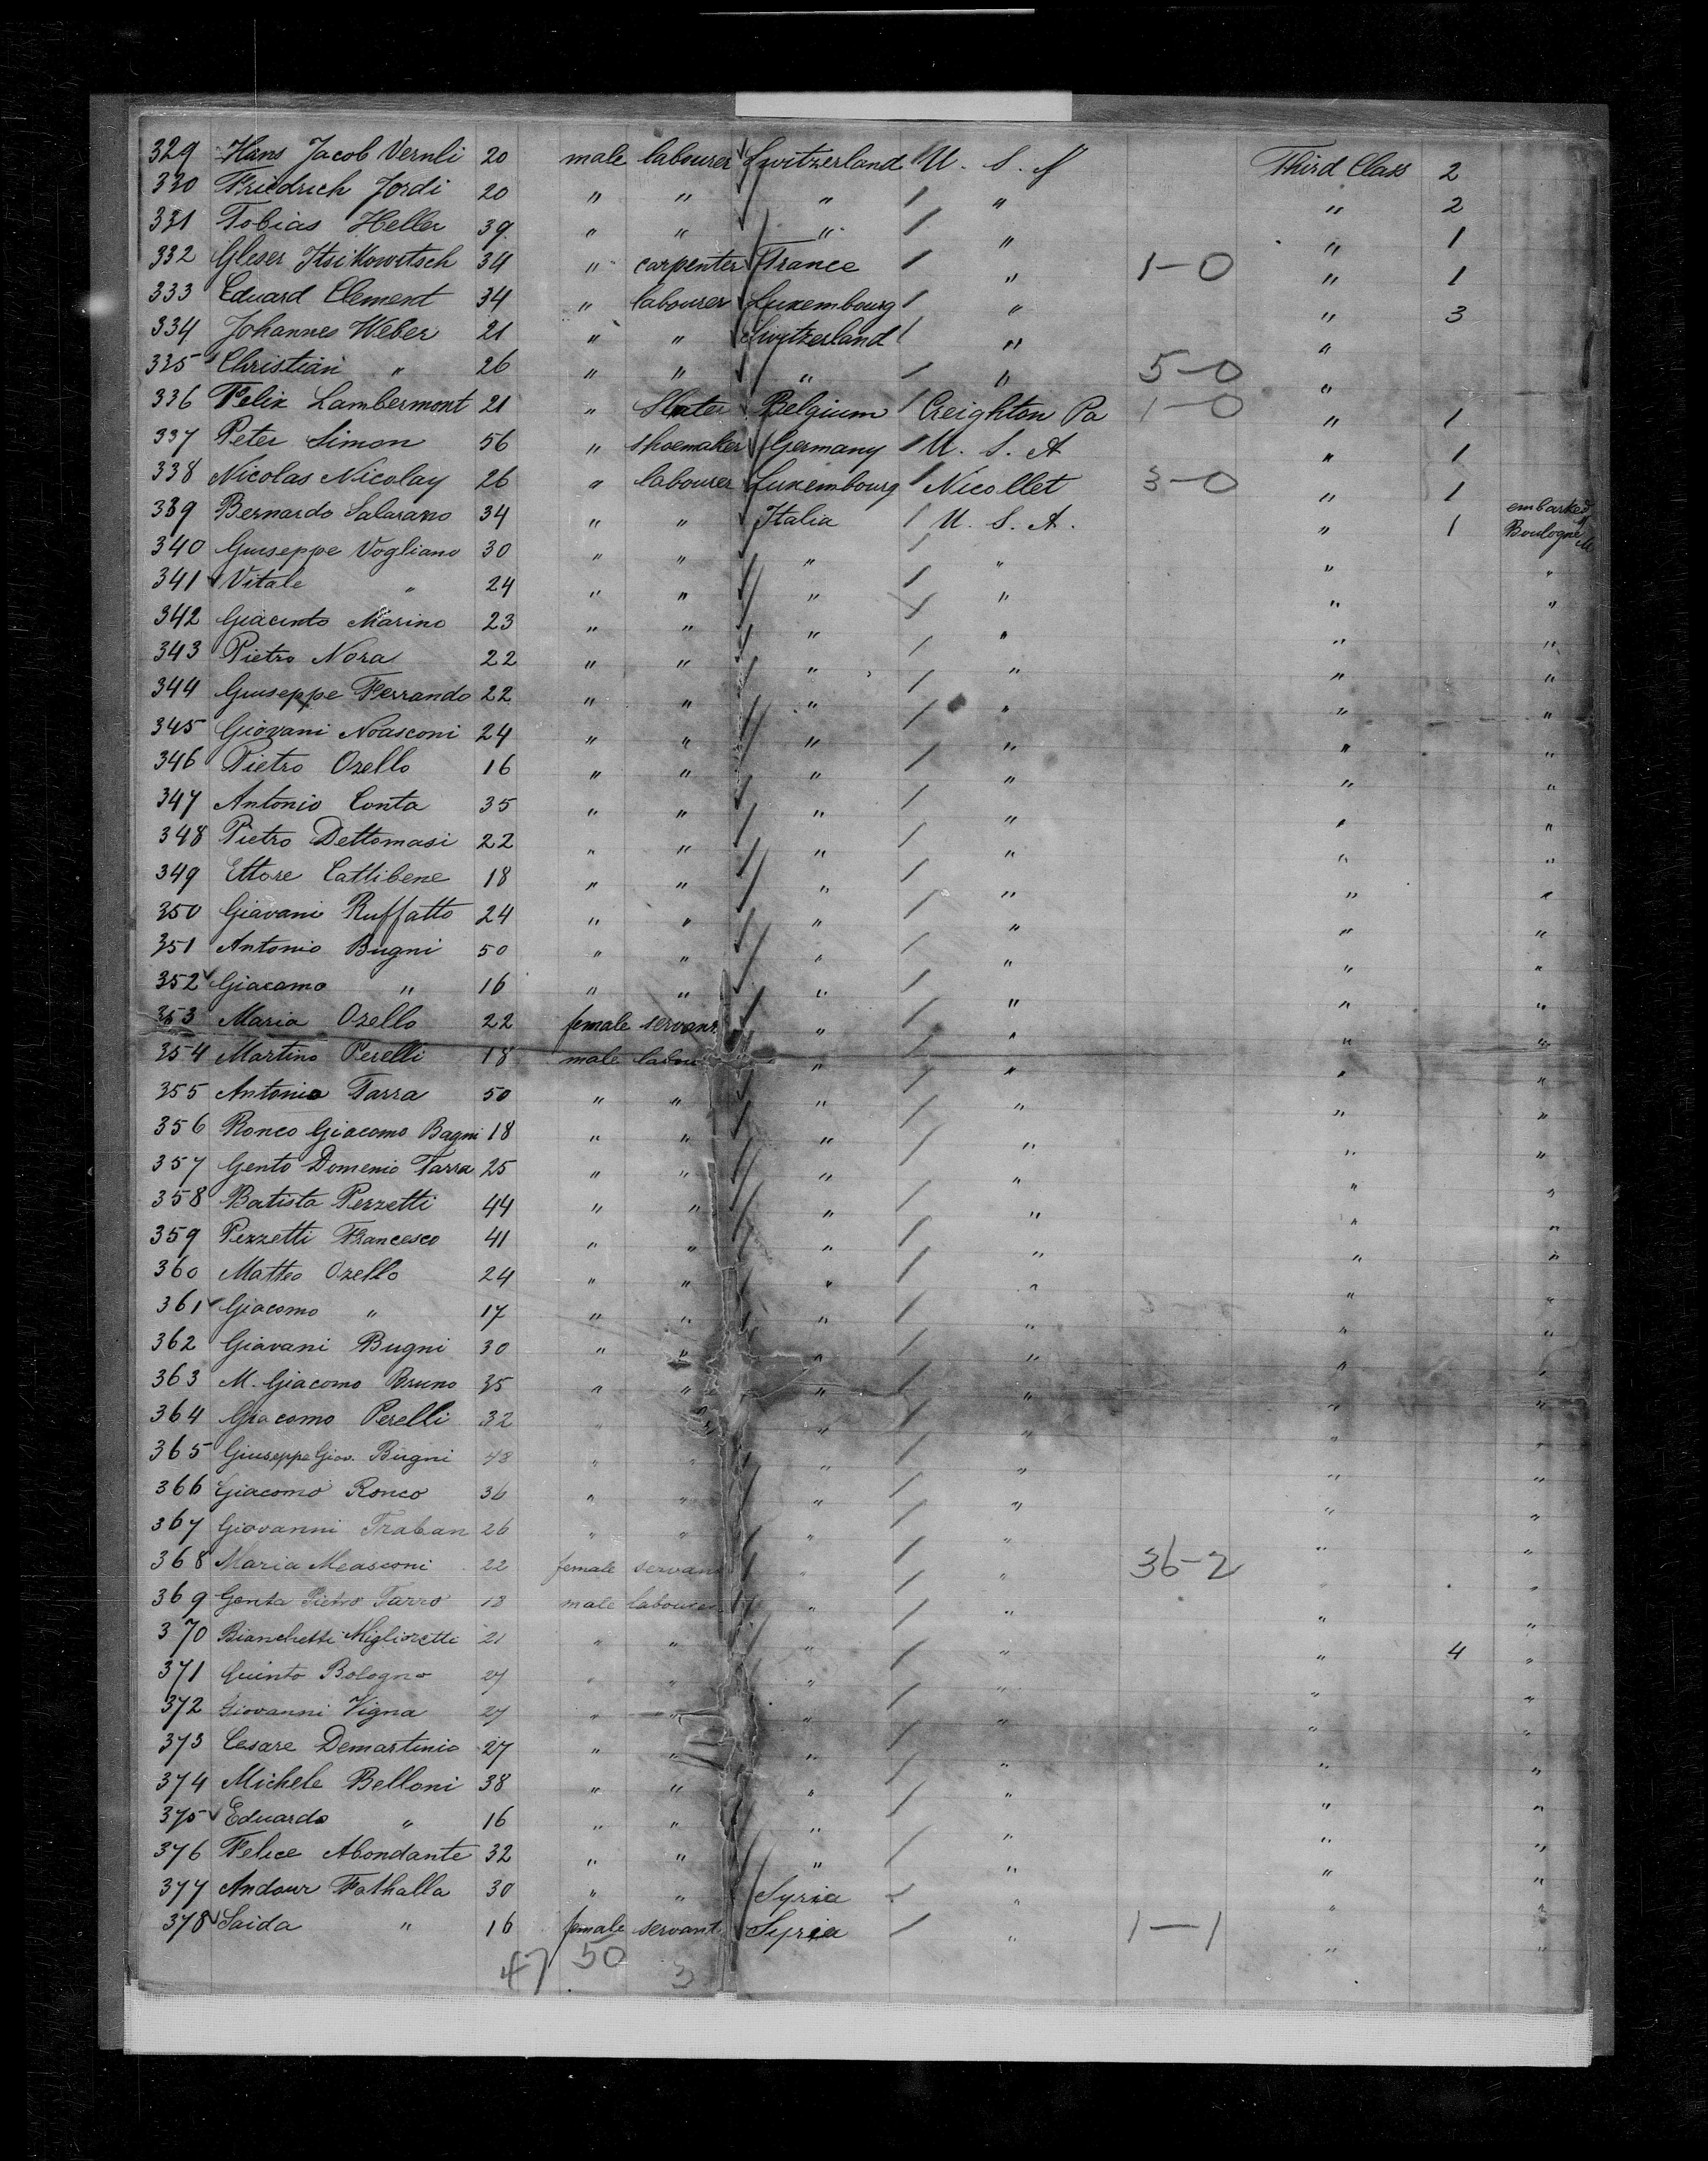 329 Hans Jacob Vernli 20 male labourer Switzerland U. S. A Third Class 2
330 Friedrich Jordi 20 " " " " " 2
331 Tobias Heller 39 " " " " " 1
332 Gleser Itsikowitsch 34 " carpenter France " 1-0 " 1
333 Eduard Clement 34 " labourer Luxembourg " " 3
334 Johannes Weber 21 " " Switzerland " "
335 Christian " 26 " " " " 5-0 "
336 Felix Lambermont 21 " Belgium Creighton Pa 1-0 " 1
337 Peter Simon 56 " shoemaker Germany U. S. A " 1
338 Nicolas Nicolay 26 " labourer Luxembourg Nicollet 3-0 " 1
339 Bernardo Salarano 34 " " Italia U. S. A. " 1 embarked Boulogne
340 Guiseppe Vogliano 30 " " " " " "
341 Vitale " 24 " " " " " "
342 Giacinto Marino 23 " " " " " "
343 Pietro Nora 22 " " " " " "
344 Guiseppe Ferrando 22 " " " " " "
345 Giovani Noasconi 24 " " " " " "
346 Pietro Ozello 16 " " " " " "
347 Antonio Conta 35 " " " " " "
348 Pietro Dettomasi 22 " " " " " "
349 Ettore Cattibene 18 " " " " " "
350 Giavani Ruffatto 24 " " " " " "
351 Antonio Bugni 50 " " " " " "
352 Giacomo " 16 " " " " " "
353 Maria Ozello 22 female servant " " " "
354 Martino Perelli 18 male labou " " " "
355 Antonio Tarra 50 " " " " " "
356 Ronco Giacomo Bagni 18 " " " " " "
357 Gento Domenio Tarra 25 " " " " " "
358 Batista Perzetti 44 " " " " " "
359 Pezzetti Francesco 41 " " " " " "
360 Matteo Ozello 24 " " " " " "
361 Giacomo " 17 " " " " " "
362 Giavani Bugni 30 " " " " " "
363 M. Giacomo Bruno 35 " " " " " "
364 Giacomo Perelli 32 " " " " " "
365 Giuseppe Giov. Bugni 48 " " " " " "
366 Giacomo Ronco 36 " " " " " "
367 Giovanni Traban 26 " " " " " "
368 Maria Measconi 22 female servant " " 36-2 " "
369 Genta Pietro Tarro 18 male labourer " " " "
370 Bianchetti Miglioretti 21 " " " " " 4 "
371 Quinto Bologna 27 " " " " " "
372 Giovanni Vigna 27 " " " " " "
373 Cesare Demartinio 27 " " " " " "
374 Michele Belloni 38 " " " " " "
375 Eduardo " 16 " " " " " "
376 Felice Abondante 32 " " " " " "
377 Andour Fathalla 30 " " Syria " " "
378 Saida " 16 female servant Syria " 1-1 " "
47 50 3